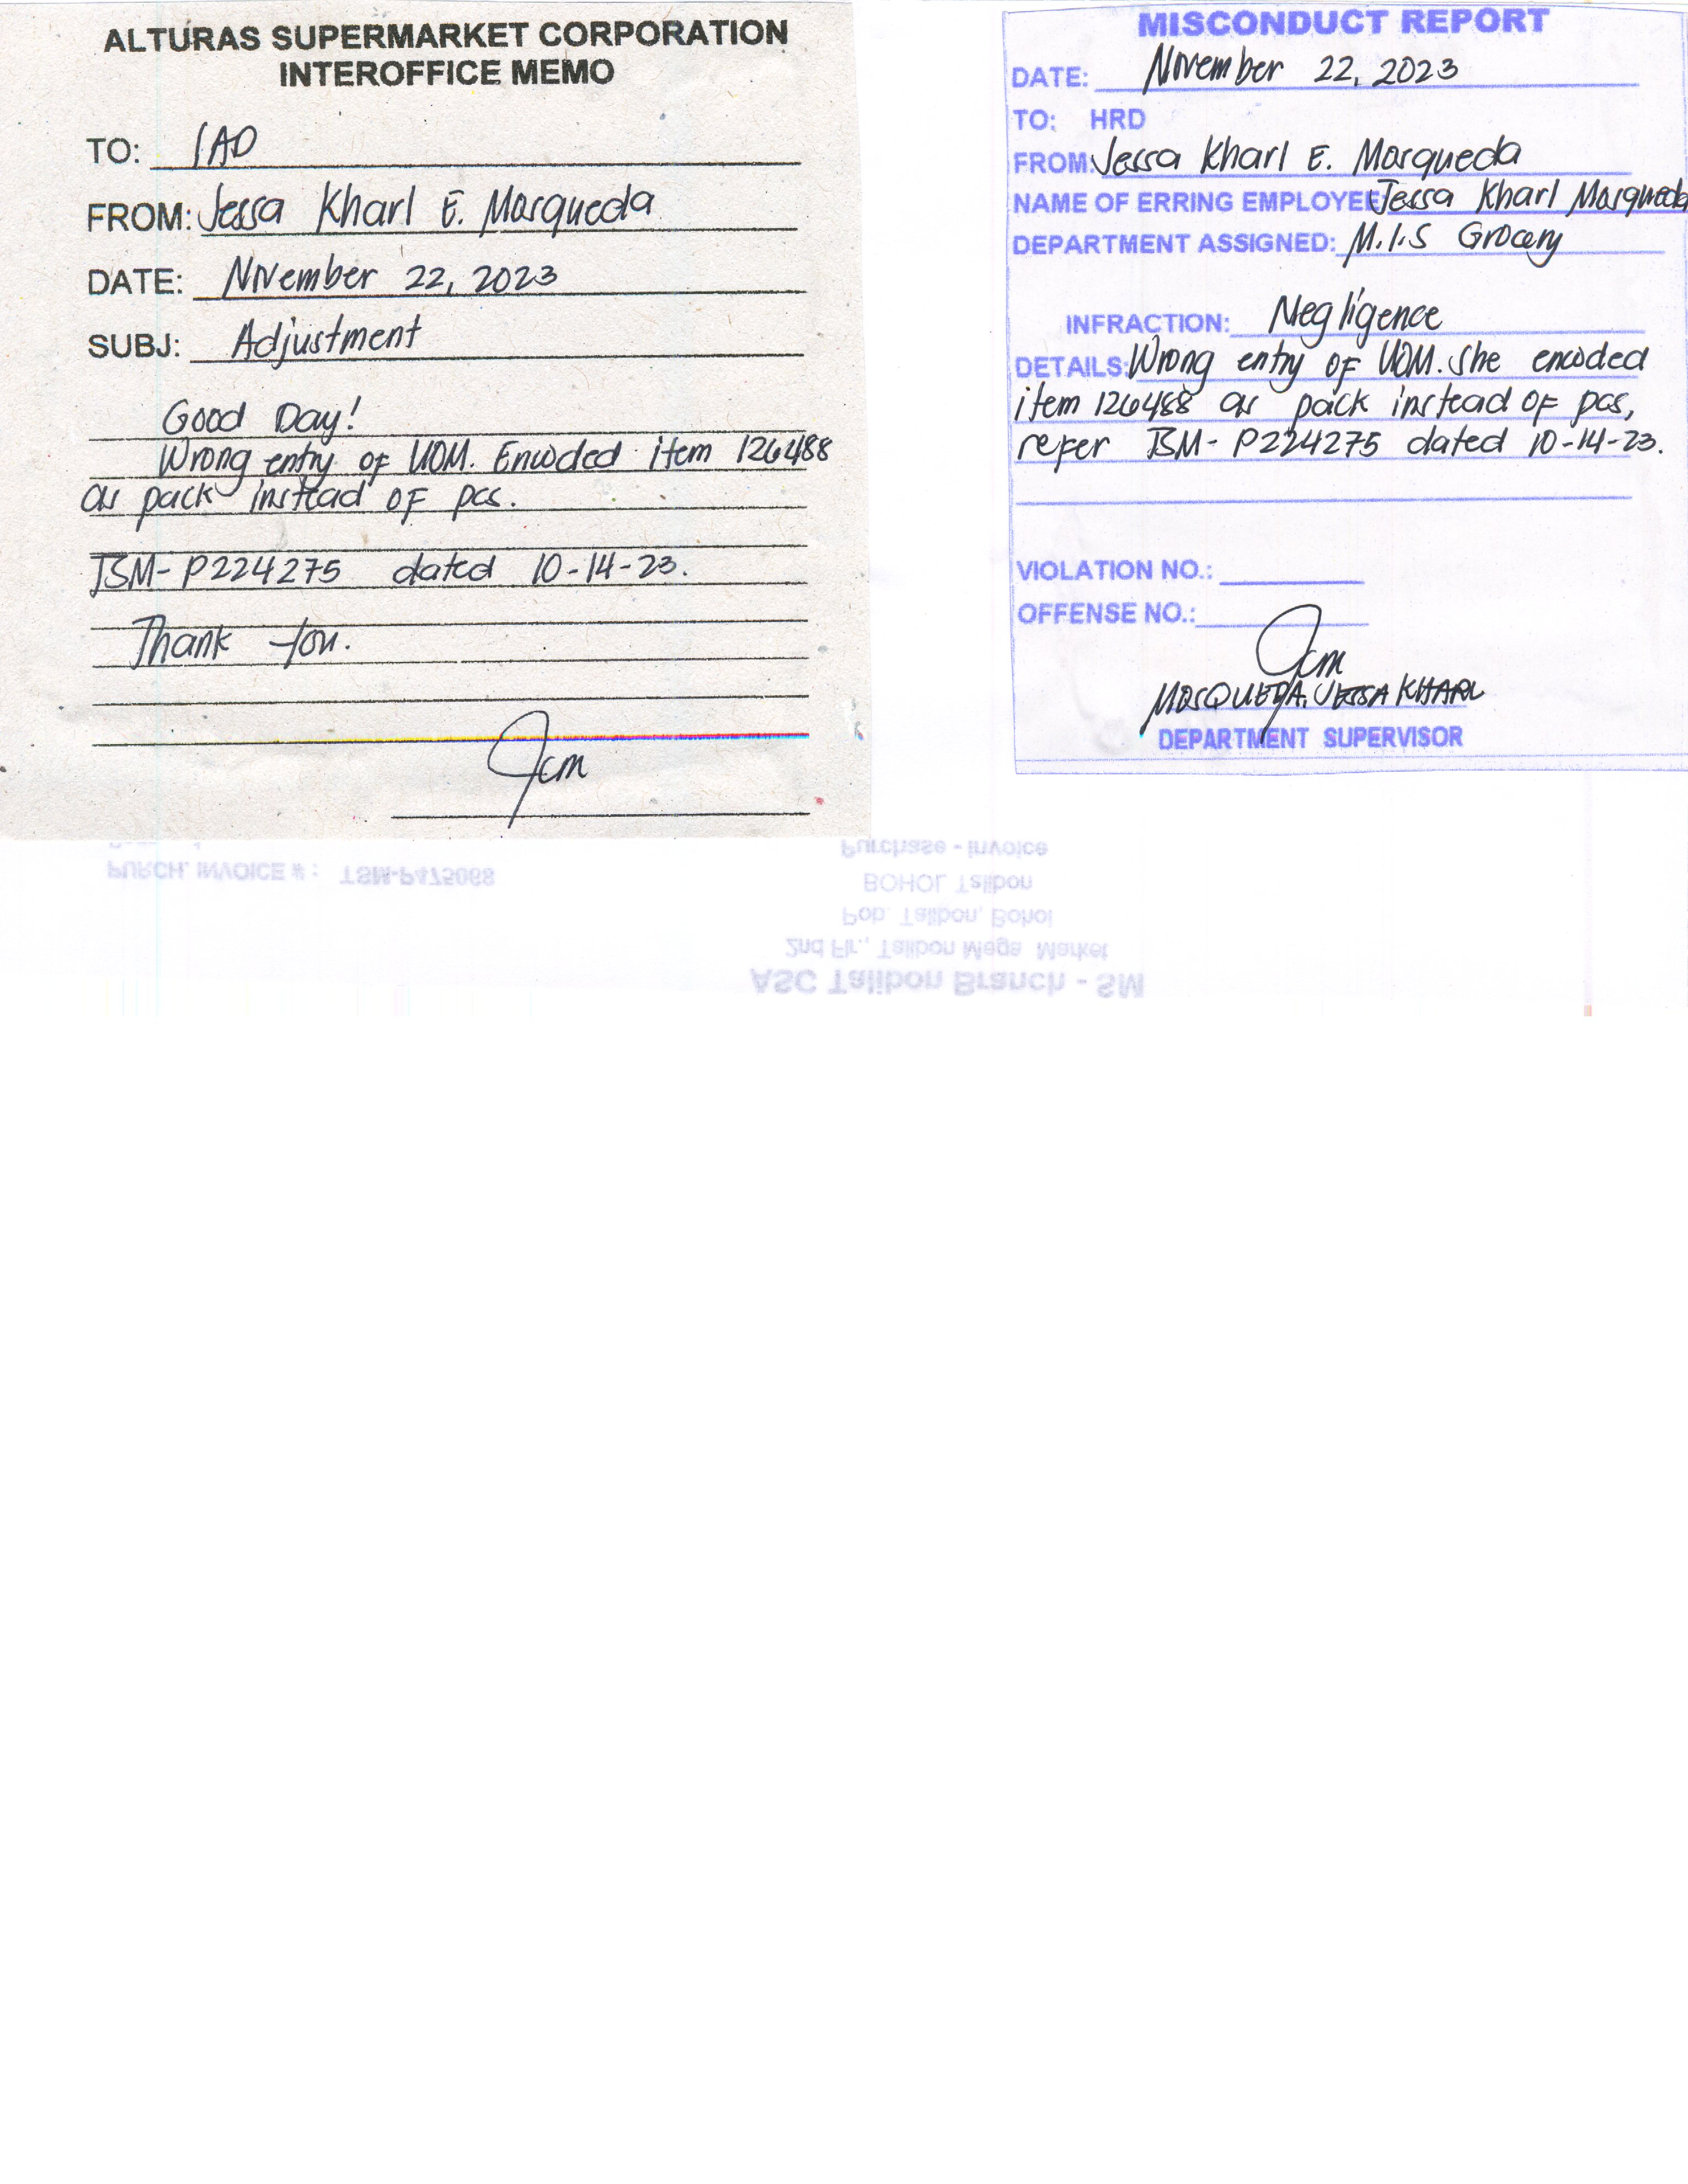 ALTURAS SUPERMARKET CORPORATION
INTEROFFICE MEMO
TO: IAD
FROM: Jessa Kharl E. Mosqueda
DATE: November 22, 2023
SUBJ: Adjustment
Good Day!
Wrong entry of UOM. Encoded item 126488
as pack instead of pcs.
TSM-P224275 dated 10-14-23.
Thank You.
Jcm
MISCONDUCT REPORT
DATE: November 22, 2023
TO: HRD
FROM: Jessa Kharl E. Mosqueda
NAME OF ERRING EMPLOYEE Jessa Kharl Mosqueda
DEPARTMENT ASSIGNED: M.I.S Grocery
INFRACTION: Negligence
DETAILS: Wrong entry of UOM. She encoded
item 126488 as pack instead of pcs,
refer TSM-P224275 dated 10-14-23.
VIOLATION NO.:
OFFENSE NO.:
Jcm
MOSQUEDA, JESSA KHARL
DEPARTMENT SUPERVISOR
Purchase - Invoice
PURCH. INVOICE # : TSM-P475068
BOHOL Talibon
Pob. Talibon, Bohol
2nd Flr., Talibon Mega Market
ASC Talibon Branch - SM